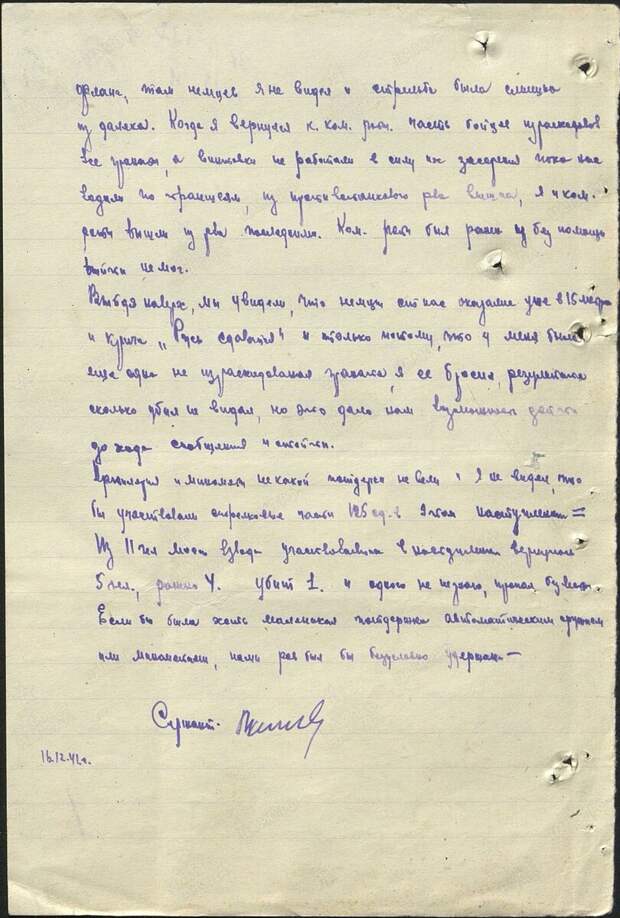 фланг, там немцев я не видел и стрельба была слышна
из далека. Когда я вернулся к ком. роты. часть бойцов израсходовав
все гранаты, а винтовки не работали в силу их засорения пока нас
водили по траншеям, из противотанкового рва вышла, я и ком.
роты вышли из рва последними. Ком. роты был ранен из без помощи
выйти не мог.
Выйдя наверх, мы увидели, что немцы от нас оказались уже в 15 метрах
и крича „Русь сдавайся" и только потому, что у меня была
еще одна не израсходованая граната, я ее бросил, результатов
сколько убил не видал, но это дало нам возможность дойти
до хода сообщения и отойти.
Артилерия и миномет не какой потдержки не вели и я не видел, что
бы участвовали стрелковые части 125 сд. в этом наступлении =
Из 11 чел моего взвода участвовавших в наступлении вернулось
5 чел., ранено 4. убит 1. и одного не нашол, пропал без вести.
Если бы была хоть маленькая потдержка автоматическим оружием
или минометами, нами ров был бы безусловно удержан —
Сержант.
16.12.41г.